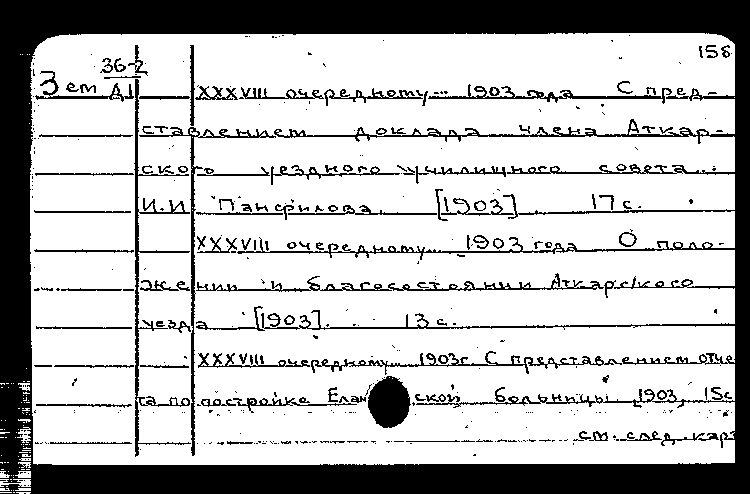 158
36-2
3 ст Д1 XXXVIII очередному... 1903 года С пред-
ставлением доклада члена Аткар-
ского уездного училищного совета...
И.И Панфилова. [1903] 17 с.
XXXVIII очередному... 1903 года О поло-
жении и благосостоянии Аткарского
уезда [1903]. 13 с.
XXXVIII очередному... 1903г. С представлением отче
та по постройке Елан ской больницы 1903, 15с
см. след. карт